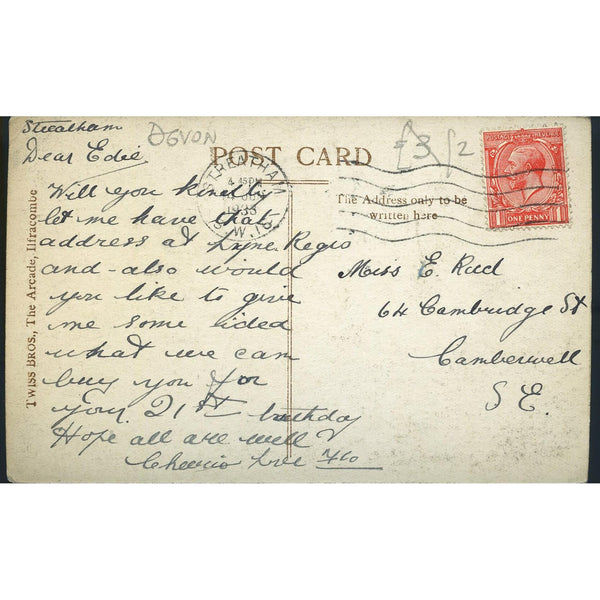 Streatham
DEVON
POST CARD
£3
/2
Dear Edie
STREATHAM
4.45PM
1933
S.W.16
POSTAGE REVENUE
ONE PENNY
The Address only to be
written here
Will you kindly
let me have that
address at Lyne Regis
and also would
you like to give
me some idea
what we can
buy you for
your 21st birthday
Hope all are well
Cheerio Love Flo
Miss E. Rud
64 Cambridge St
Camberwell
S E.
TWISS BROS., The Arcade, Ilfracombe